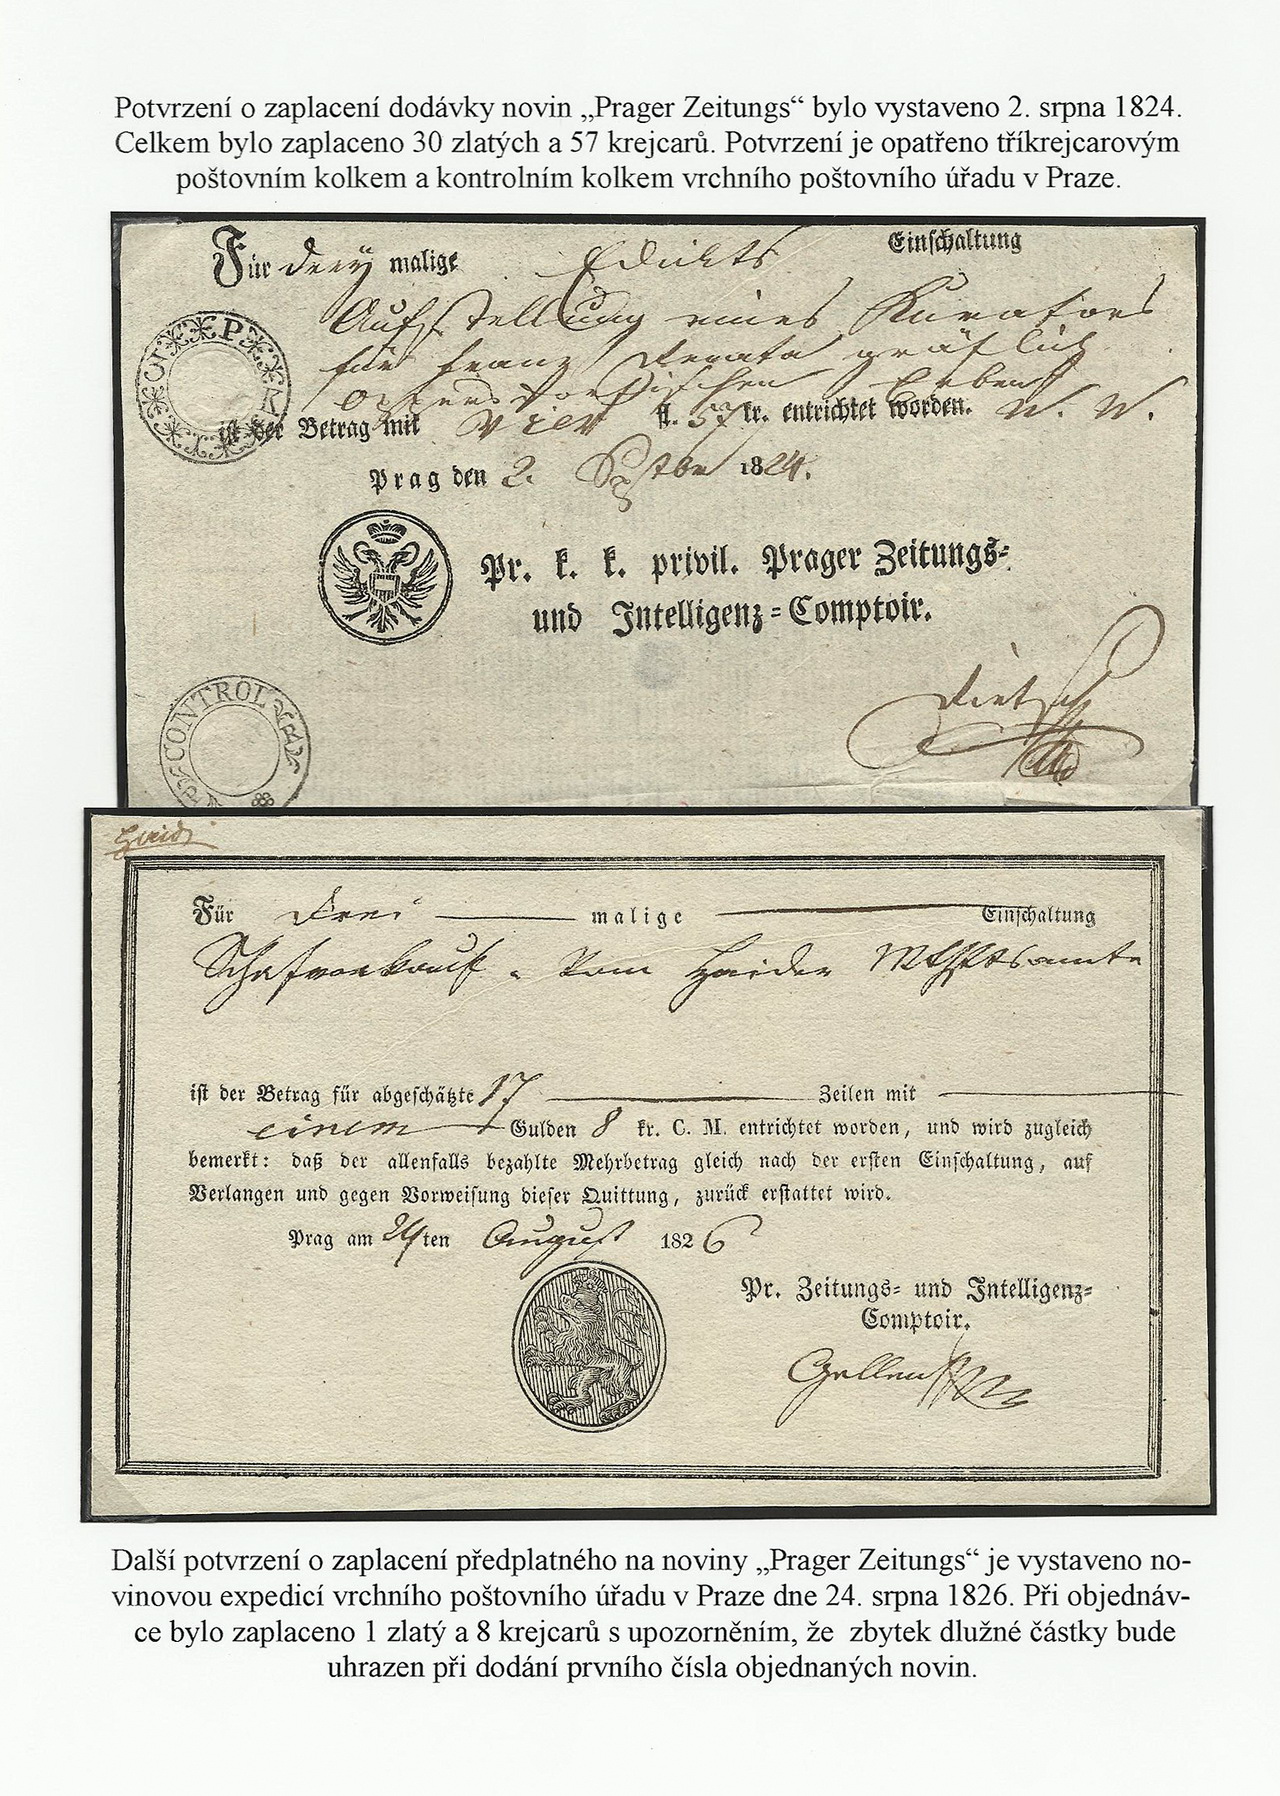 Potvrzení o zaplacení dodávky novin „Prager Zeitungs“ bylo vystaveno 2. srpna 1824.
Celkem bylo zaplaceno 30 zlatých a 57 krejcarů. Potvrzení je opatřeno tříkrejcarovým
poštovním kolkem a kontrolním kolkem vrchního poštovního úřadu v Praze.
Für drey malige Edickts Einschaltung
Aufstellung eines Kurators
für Franz gräflich
Erben
ist der Betrag mit vier fl. 57 kr. entrichtet worden. W. W.
Prag den 2. 1824.
Pr. k. k. privil. Prager Zeitungs-
und Intelligenz-Comptoir.
CONTROL
Für Drei malige Einschaltung
Schafverkauf. Vom Haider
ist der Betrag für abgeschätzte 17 Zeilen mit
einem Gulden 8 kr. C. M. entrichtet worden, und wird zugleich
bemerkt: daß der allenfalls bezahlte Mehrbetrag gleich nach der ersten Einschaltung, auf
Verlangen und gegen Vorweisung dieser Quittung, zurück erstattet wird.
Prag am 24ten August 1826
Pr. Zeitungs- und Intelligenz-
Comptoir.
Další potvrzení o zaplacení předplatného na noviny „Prager Zeitungs“ je vystaveno no-
vinovou expedicí vrchního poštovního úřadu v Praze dne 24. srpna 1826. Při objednáv-
ce bylo zaplaceno 1 zlatý a 8 krejcarů s upozorněním, že zbytek dlužné částky bude
uhrazen při dodání prvního čísla objednaných novin.